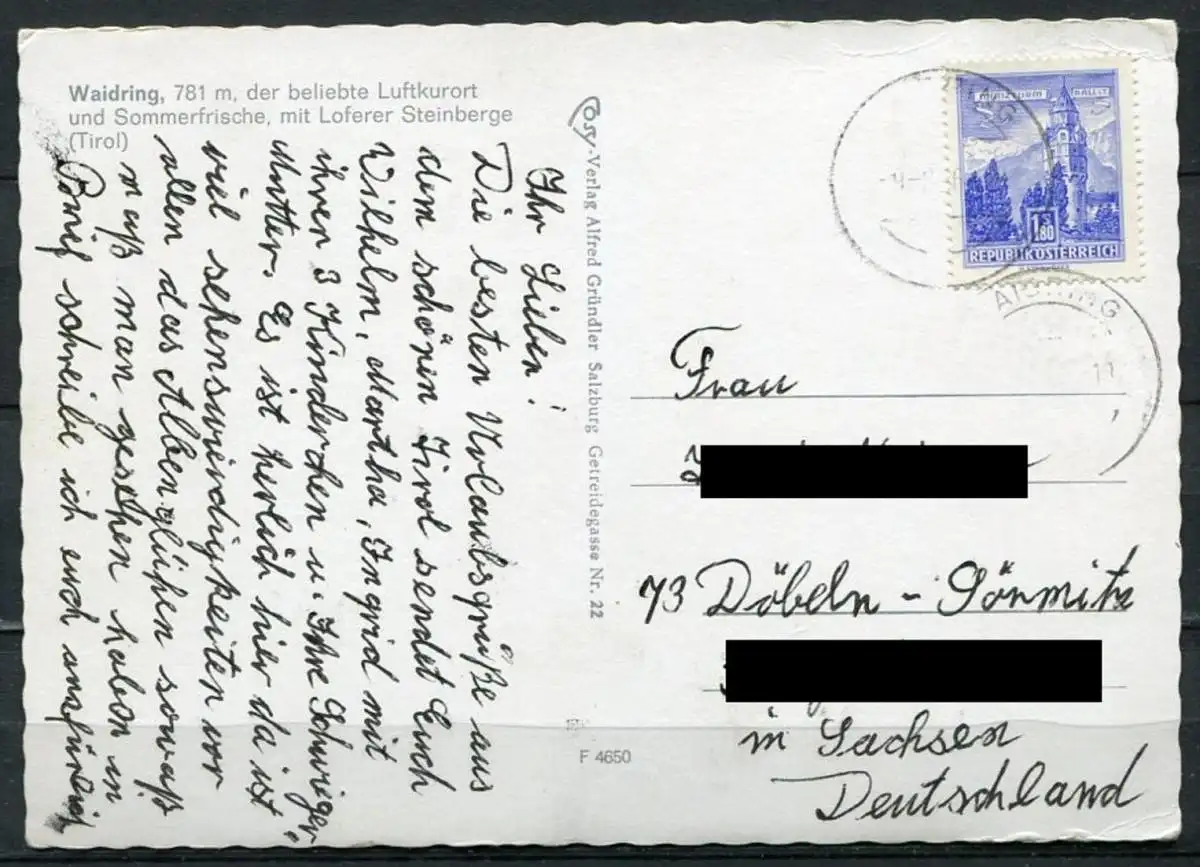 Waidring, 781 m, der beliebte Luftkurort
und Sommerfrische, mit Loferer Steinberge
(Tirol)
Ihr Lieben!
Die besten Urlaubsgrüße aus
dem schönen Tirol sendet Euch
Wilhelm, Martha, Ingrid mit
ihren 3 Kinderchen u. Ihre Schwiger
Mutter. Es ist herlich hier da ist
viel sehenswürdigkeiten vor
allen das Alben glühen sowaß
muß man gesehen haben in
Brief schreibe ich euch
Cosy-Verlag Alfred Gründler Salzburg Getreidegasse Nr. 22
F 4650
MÜNZTURM HALL I. T.
1.80
S
REPUBLIK ÖSTERREICH
AIDRING
11
Frau
73 Döbeln - Görmitz
in Sachsen
Deutschland